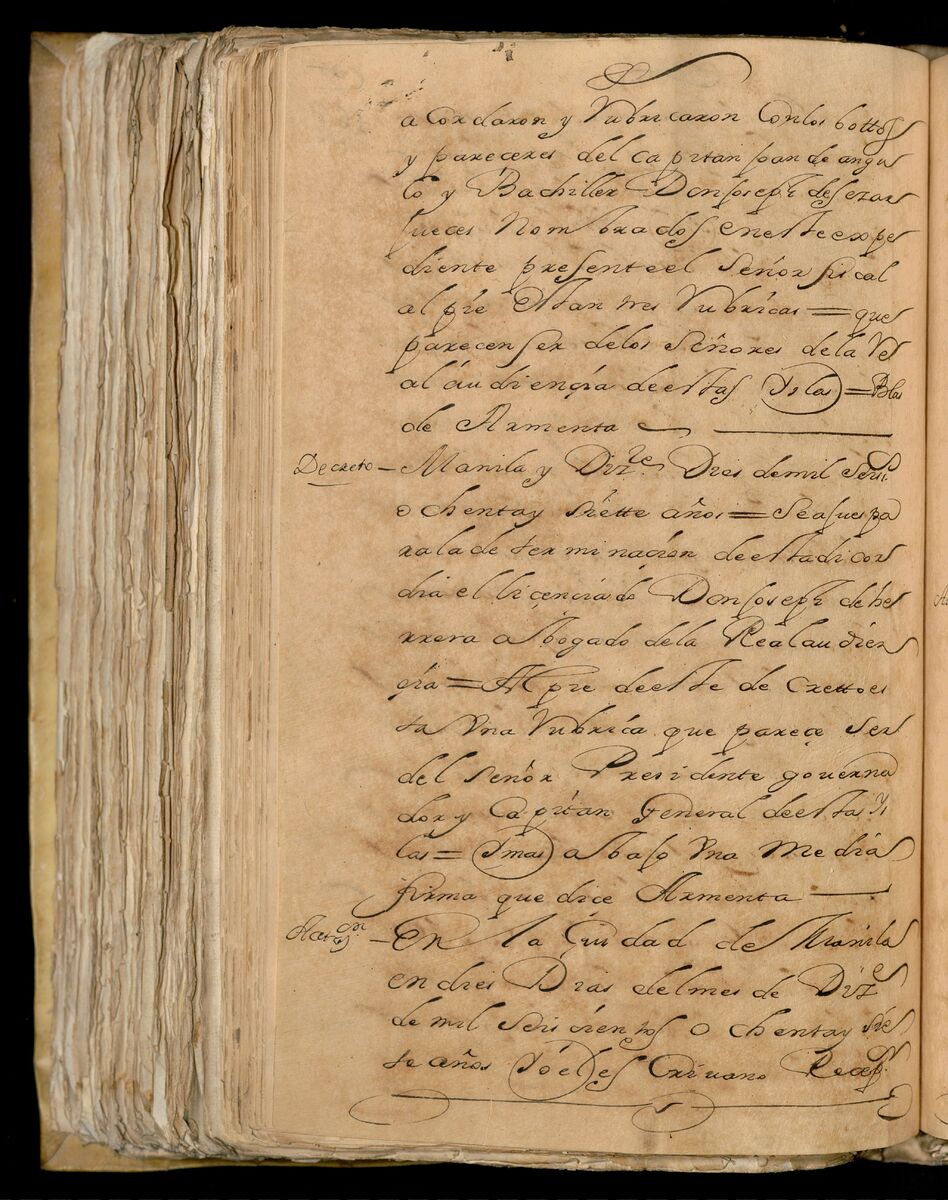 acordaron y Rubricaron Conlos bottos
y pareceres del capitan Juan de angu
lo y Bachiller Don Joseph de sezar
Jueces Nombrados eneste expe
diente presente el Señor fiscal
al píe estan tres Rubrícas = que
parecen ser delos Señores dela Re
al áudiençía deestas Yslas = Blas
de Armenta
Decreto - Manila y Diz.re Dies demil Seisº
ochentay siette años = Seajues pa
rala determinaçíon deesta dicor
día el liçençíado Don Joseph dehe
rrera abogado dela Real audien
çía = Al pie deeste decretto es
ta Vna Rubríca que pareçe ser
del Señor Presidente governa
dor y Capítan General deestas ys
las = Ymas abajo Vna Medía
firma que dice Armenta
En la Ciudad de Maníla
en dies Días delmes de Diz.e
de mil Seisçientos ochentay síe
te años Yo el es Crivano Recep.r